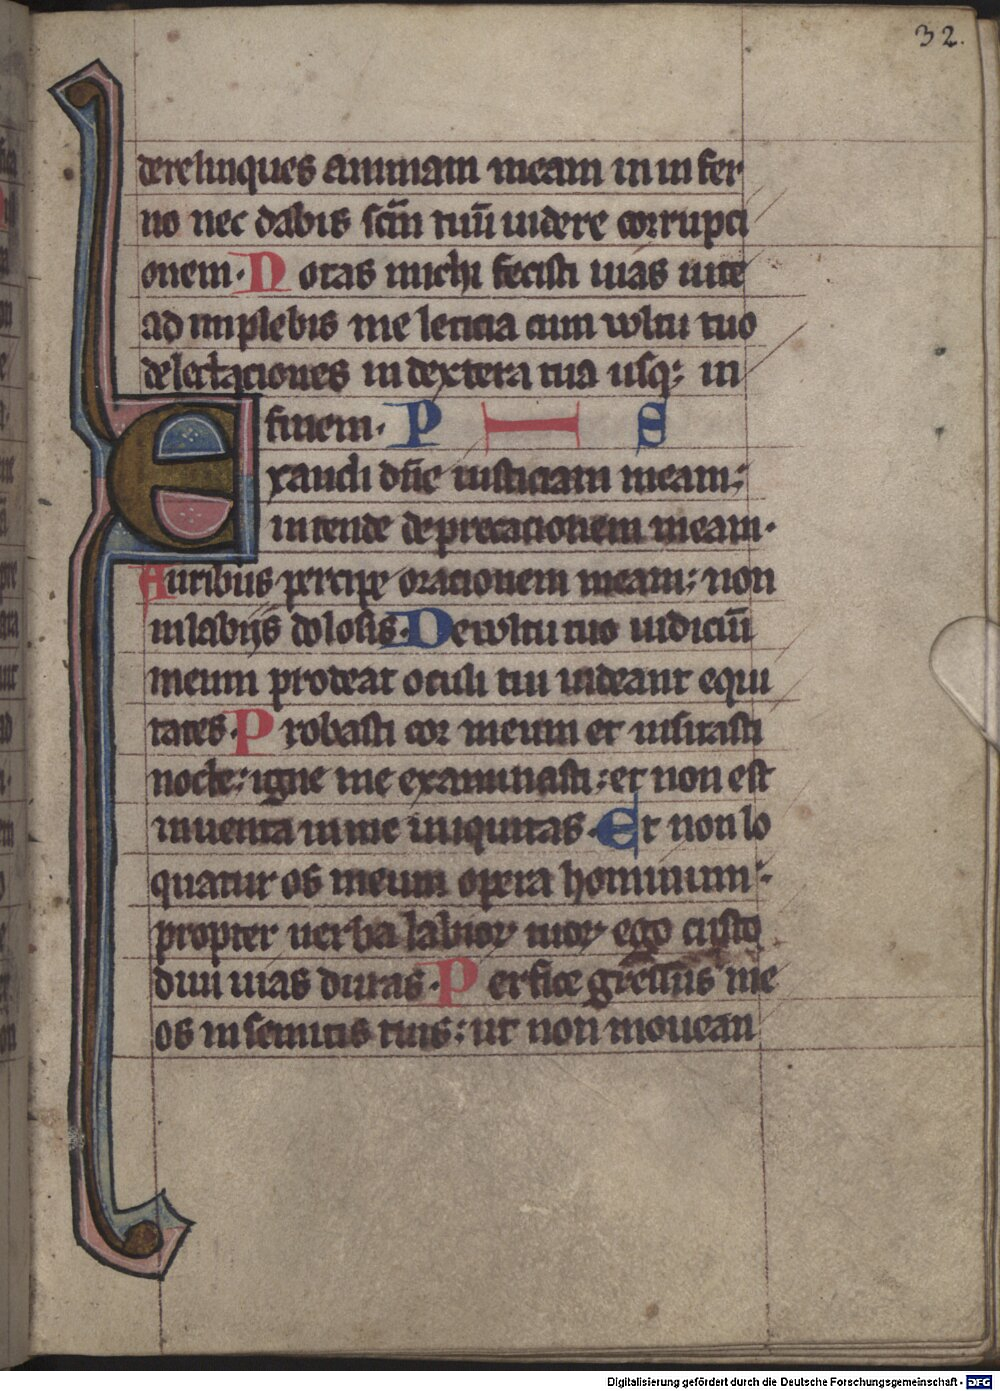 32.
derelinques animam meam in infer
no nec dabis scm̄ tuū uidere corrupci
onem. Notas michi fecisti uias uite
adimplebis me leticia cum wltu tuo
delectaciones in dextera tua usq; in
finem. P I S
Exaudi dn̄e iusticiam meam;
intende deprecacionem meam.
Auribus percipe oracionem meam; non
in labijs dolosis. De wltu tuo iudiciū
meum prodeat oculi tui uideant equi
tates. Probasti cor meum et uisitasti
nocte; igne me examinasti; et non est
inuenta in me iniquitas. Et non lo
quatur os meum opera hominum;
propter uerba labioꝝ tuoꝝ ego custo
diui uias duras. Perfice gressus me
os in semitis tuis; ut non mouean
Digitalisierung gefördert durch die Deutsche Forschungsgemeinschaft - DFG